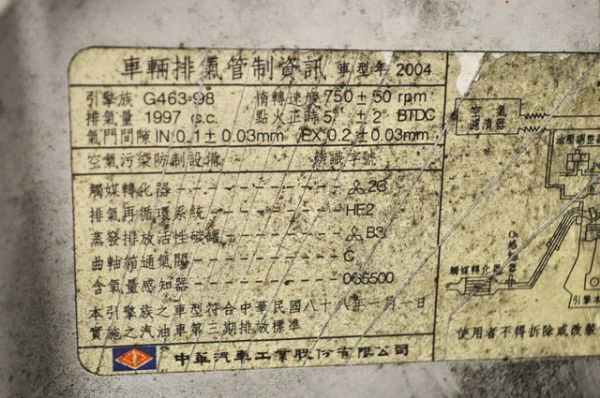 車輛排氣管制資訊 車型年 2004
引擎族 G463-98 惰轉速度 750 ± 50 rpm
排氣量 1997 c.c. 點火正時 5° ± 2° BTDC
氣門間隙 IN 0.1 ± 0.03mm EX 0.2 ± 0.03mm
空氣污染防制設備 辨識字號
觸媒轉化器 2C
排氣再循環系統 HF2
蒸發排放活性碳罐 B3
曲軸箱通氣閥 C
含氧量感知器 065500
本引擎族之車型符合中華民國八十八年一月一日
實施之汽油車第三期排放標準
中華汽車工業股份有限公司
空氣
濾清器
O₂感知器
觸媒轉化器
引擎本
使用者不得拆除或改裝